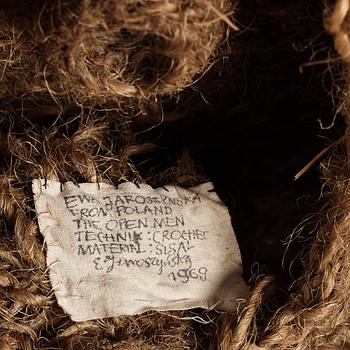 EWA JAROSZYŃSKA
FROM POLAND
THE OPEN MEN
TECHNIK: CROCHET
MATERIAL: SISAL
E Jaroszyńska
1969